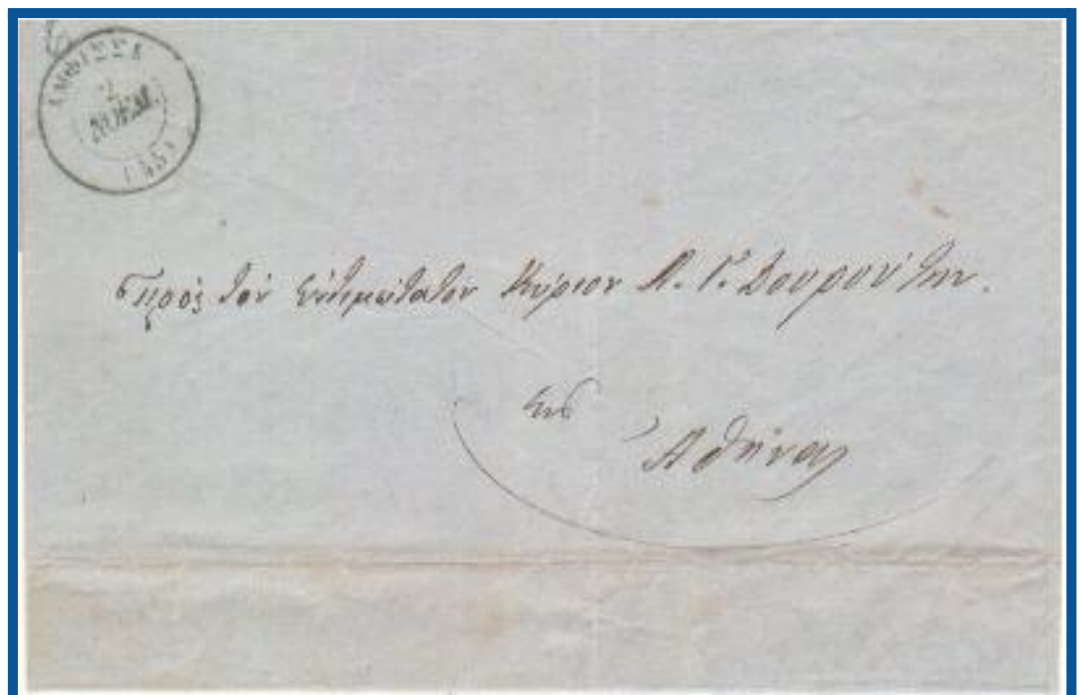 ΑΜΦΙΣΣΑ
2
ΝΟΕΜ.
Πρὸς τὸν ἐντιμώτατον Κύριον Α. Γ. Δουρούτην.
εἰς
Ἀθήνας